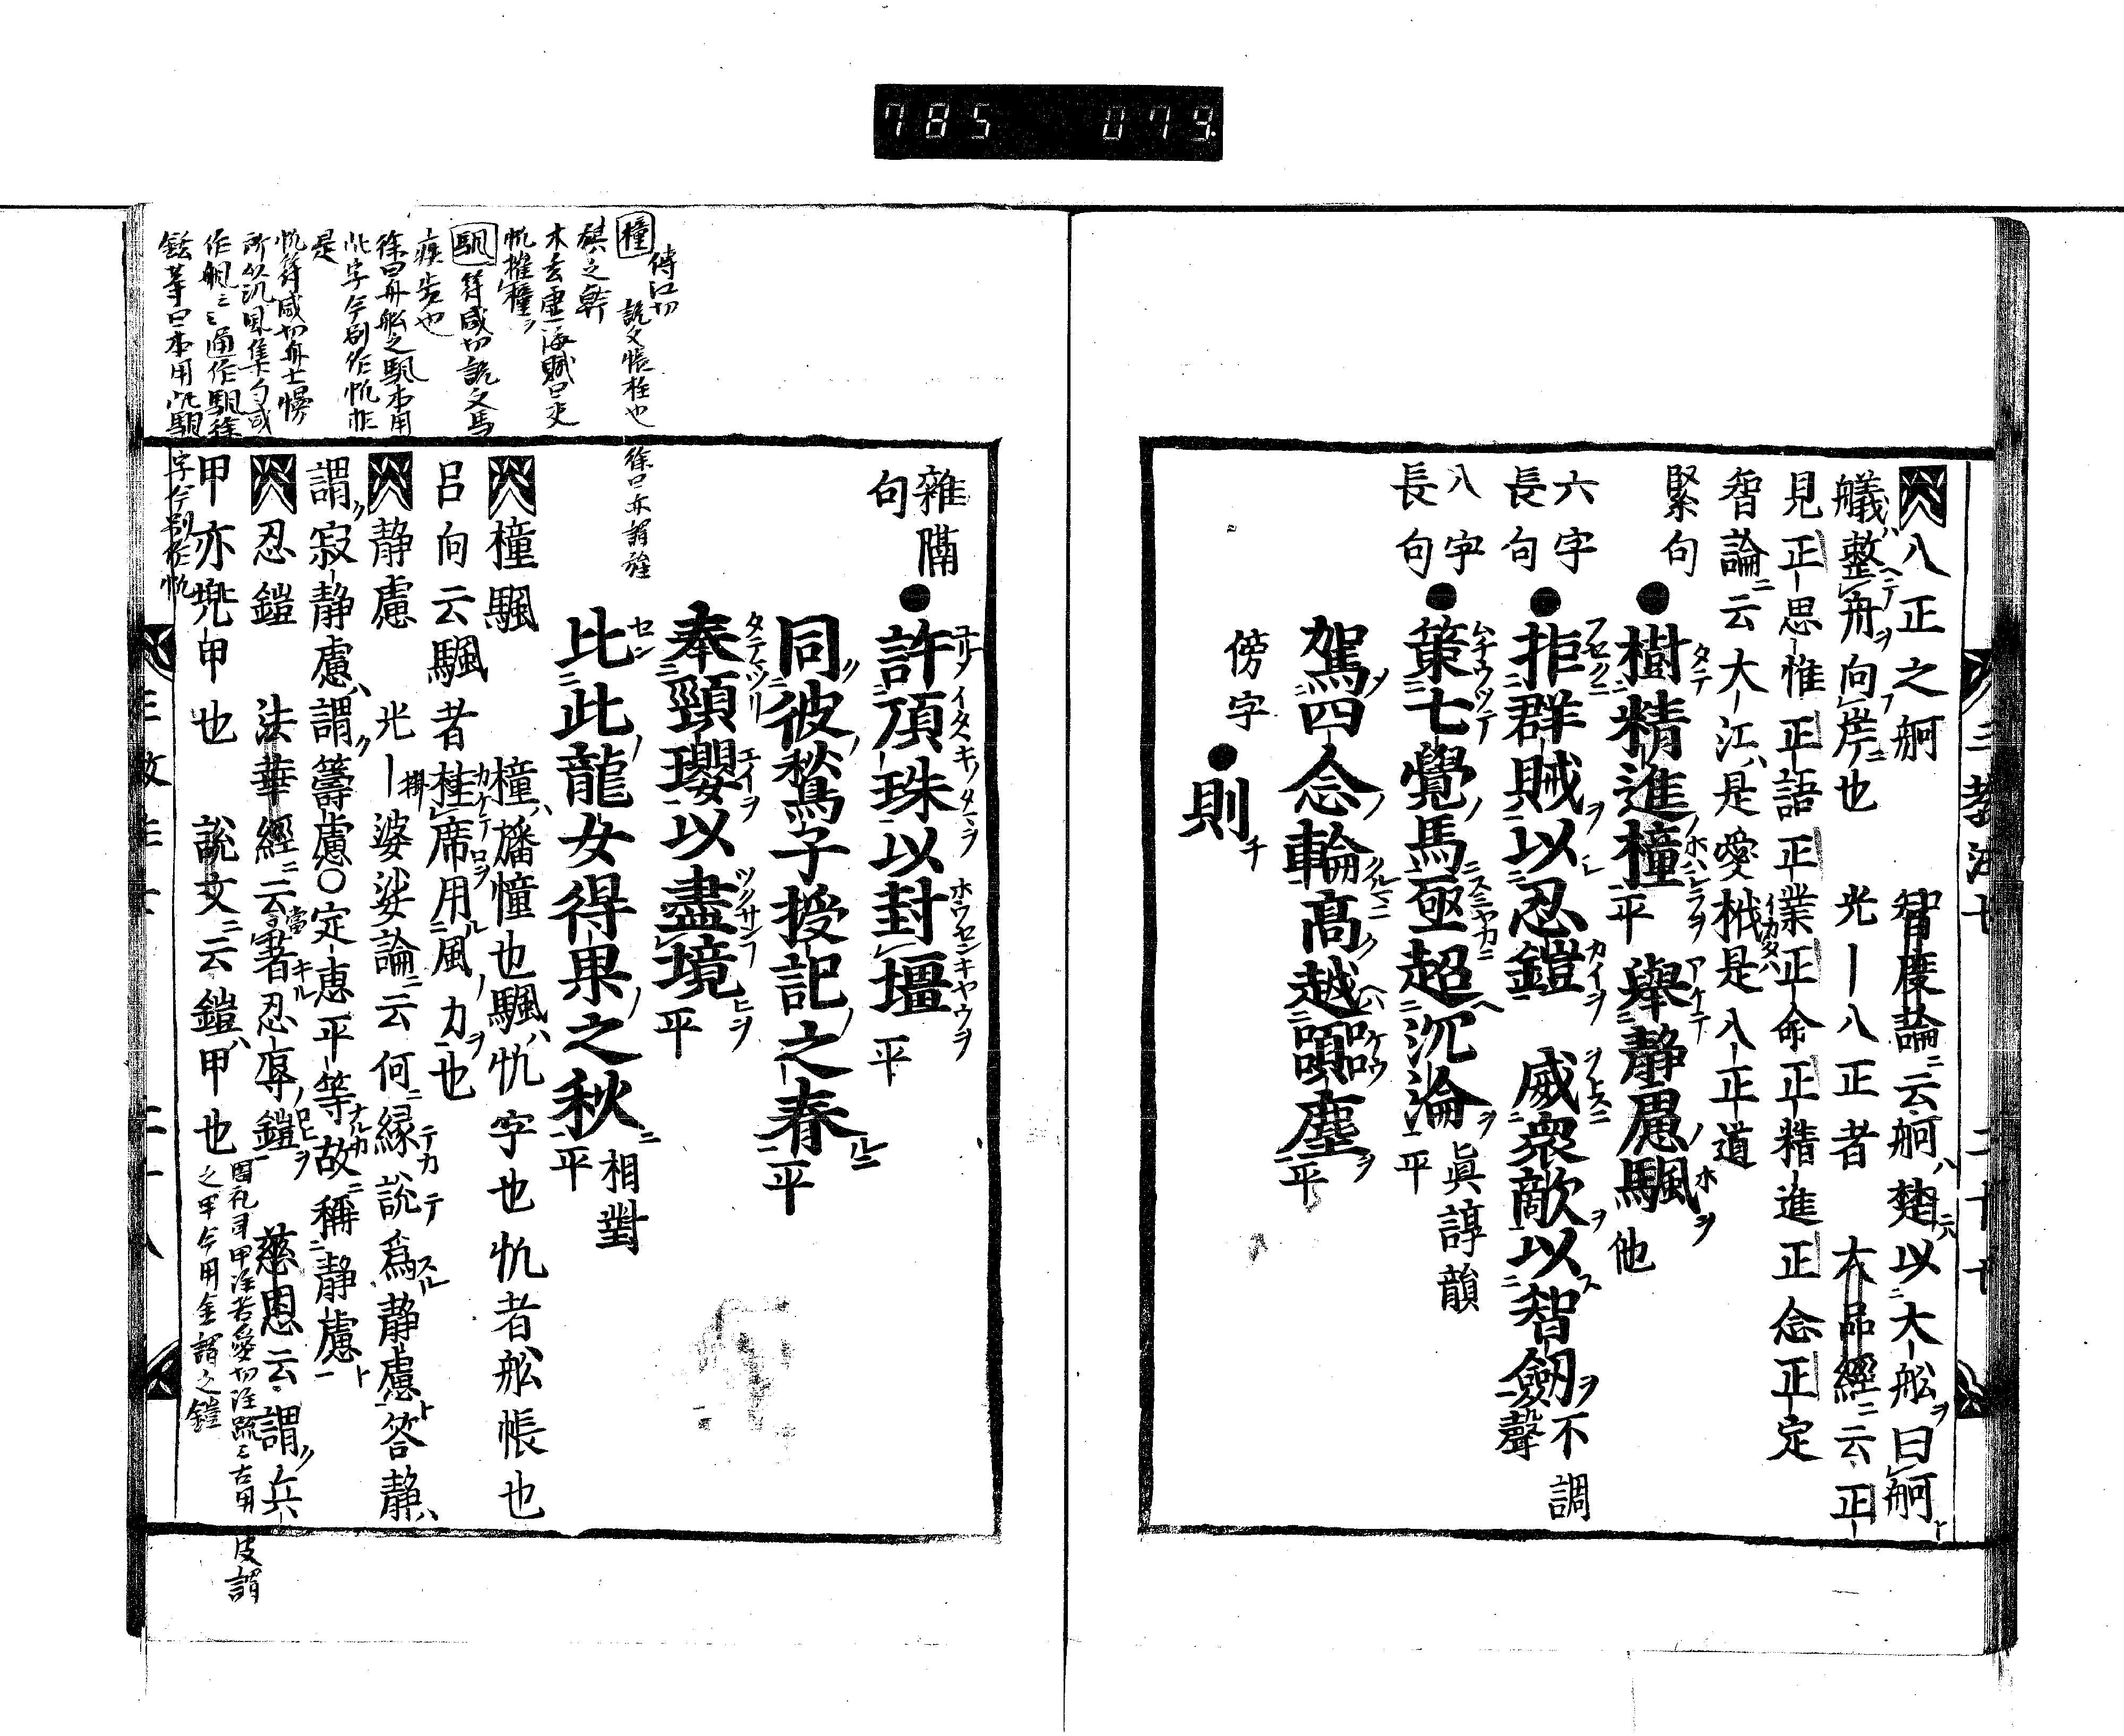 785 079
八正之舸 智度論云舸楚以大舩曰舸
艤整舟向岸也 光一八正者 大品經云正
見正思惟正語正業正命正精進正念正定
智論云大江是愛栰是八正道
緊句 ●樹精進橦平 擧靜慮颿他
六字長句 ●拒群賊以忍鎧 威衆敵以智劔不調聲
八字長句 ●策七覺馬亟超沉淪平 眞諄韻
駕四念輪高越嚻塵平
傍字 ●則
雜隔句 ●許頂珠以封壃平
同彼鶖子授記之春平
奉頸瓔以盡境平
比此龍女得果之秋平 相對
橦颿 橦旛幢也颿帆字也帆者舩帳也
呂向云颿者挂席用風力也
静慮 光一婆娑論云何縁說爲静慮答静
謂寂静慮謂籌慮○定惠平等故稱静慮
忍鎧 法華經云當著忍辱鎧 慈恩云謂兵
甲亦兠甲也 說文云鎧甲也
橦 傳江切 説文帳柱也 徐曰亦謂
旗之幹
木玄虚海賦曰
帆摧橦
颿 符咸切説文馬
疾歩也
徐曰舟舩之颿本用
此字今別作帆非
是
帆符咸切舟上幔
所以汎風集匀或
作颿通作颿徐
鉉等曰本用此颿
字今別作帆
之甲今用金謂之鎧
皮謂